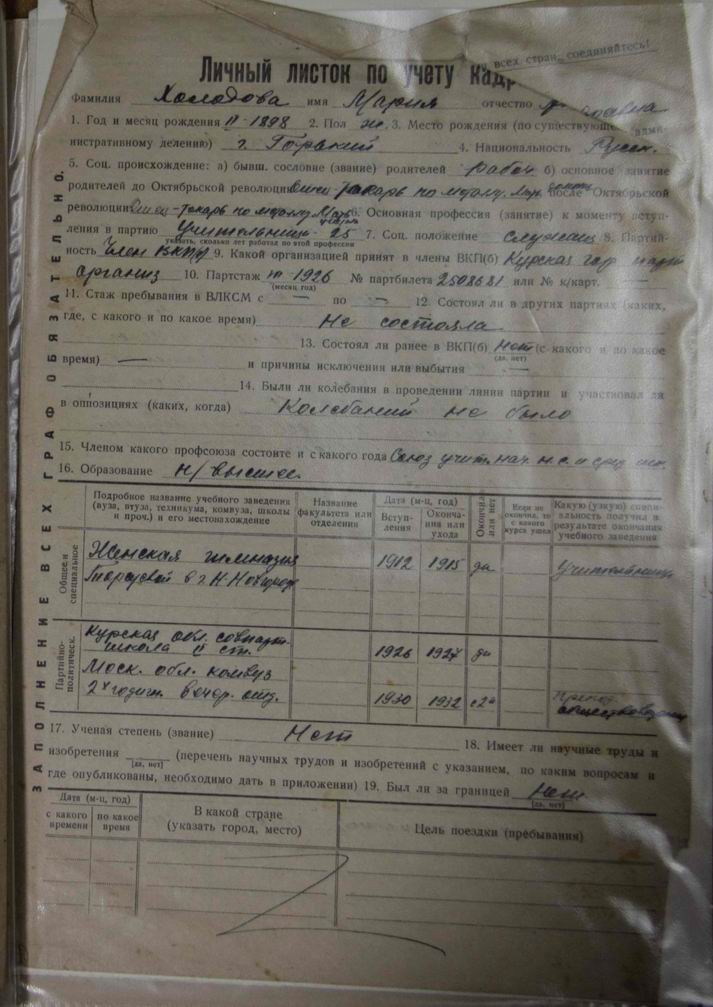 всех стран, соединяйтесь!
Личный листок по учету кадр
Фамилия Холодова имя Мария отчество
1. Год и месяц рождения III-1898 2. Пол ж. 3. Место рождения (по существующе адми
нистративному делению) г. Горький 4. Национальность Русск.
5. Соц. происхождение: а) бывш. сословие (звание) родителей рабоч. б) основное занятие
родителей до Октябрьской революции токарь по металу. после Октябрьской
революции токарь по металу 6. Основная профессия (занятие) к моменту вступ-
ления в партию Учительница - 25 7. Соц. положение служащ 8. Партий-
указать, сколько лет работал по этой профессии
ность Член ВКП(б) 9. Какой организацией принят в члены ВКП(б) Курская гор. парт
организ 10. Партстаж III 1926 № партбилета 2508681 или № к/карт. —
(месяц год)
11. Стаж пребывания в ВЛКСМ с — по — 12. Состоял ли в других партиях (каких,
где, с какого и по какое время) Не состояла
13. Состоял ли ранее в ВКП(б) Нет (с какого и по какое
(да, нет)
время) — и причины исключения или выбытия —
14. Были ли колебания в проведении линии партии и участвовал ли
в оппозициях (каких, когда) Колебаний не было
15. Членом какого профсоюза состоите и с какого года Союз учит. нач. и сред. шк.
16. Образование н/высшее
Подробное название учебного заведения (вуза, втуза, техникума, комвуза, школы и проч.) и его местонахождение
Название факультета или отделения
Дата (м-ц, год)
Вступ-ления
Оконча-ния или ухода
Окончил или нет
Если не окончил, то с какого курса ушел
Какую (узкую) специ-альность получил в результате окончания учебного заведения
Общее и специальное
Женская гимназия 1912 1915 да учительница
в г. Н. Новгороде
Партийно-политическ.
Курская обл. совпарт-
школа II ст. 1926 1927 да
Моск. обл. комвуз
2х годичн. вечер. отд. 1930 1932 препод. обществоведения
17. Ученая степень (звание) Нет 18. Имеет ли научные труды и
изобретения (перечень научных трудов и изобретений с указанием, по каким вопросам и
(да, нет)
где опубликованы, необходимо дать в приложении) 19. Был ли за границей Нет
(да, нет)
Дата (м-ц, год)
с какого времени
по какое время
В какой стране (указать город, место)
Цель поездки (пребывания)
ЗАПОЛНЕНИЕ ВСЕХ ГРАФ ОБЯЗАТЕЛЬНО.